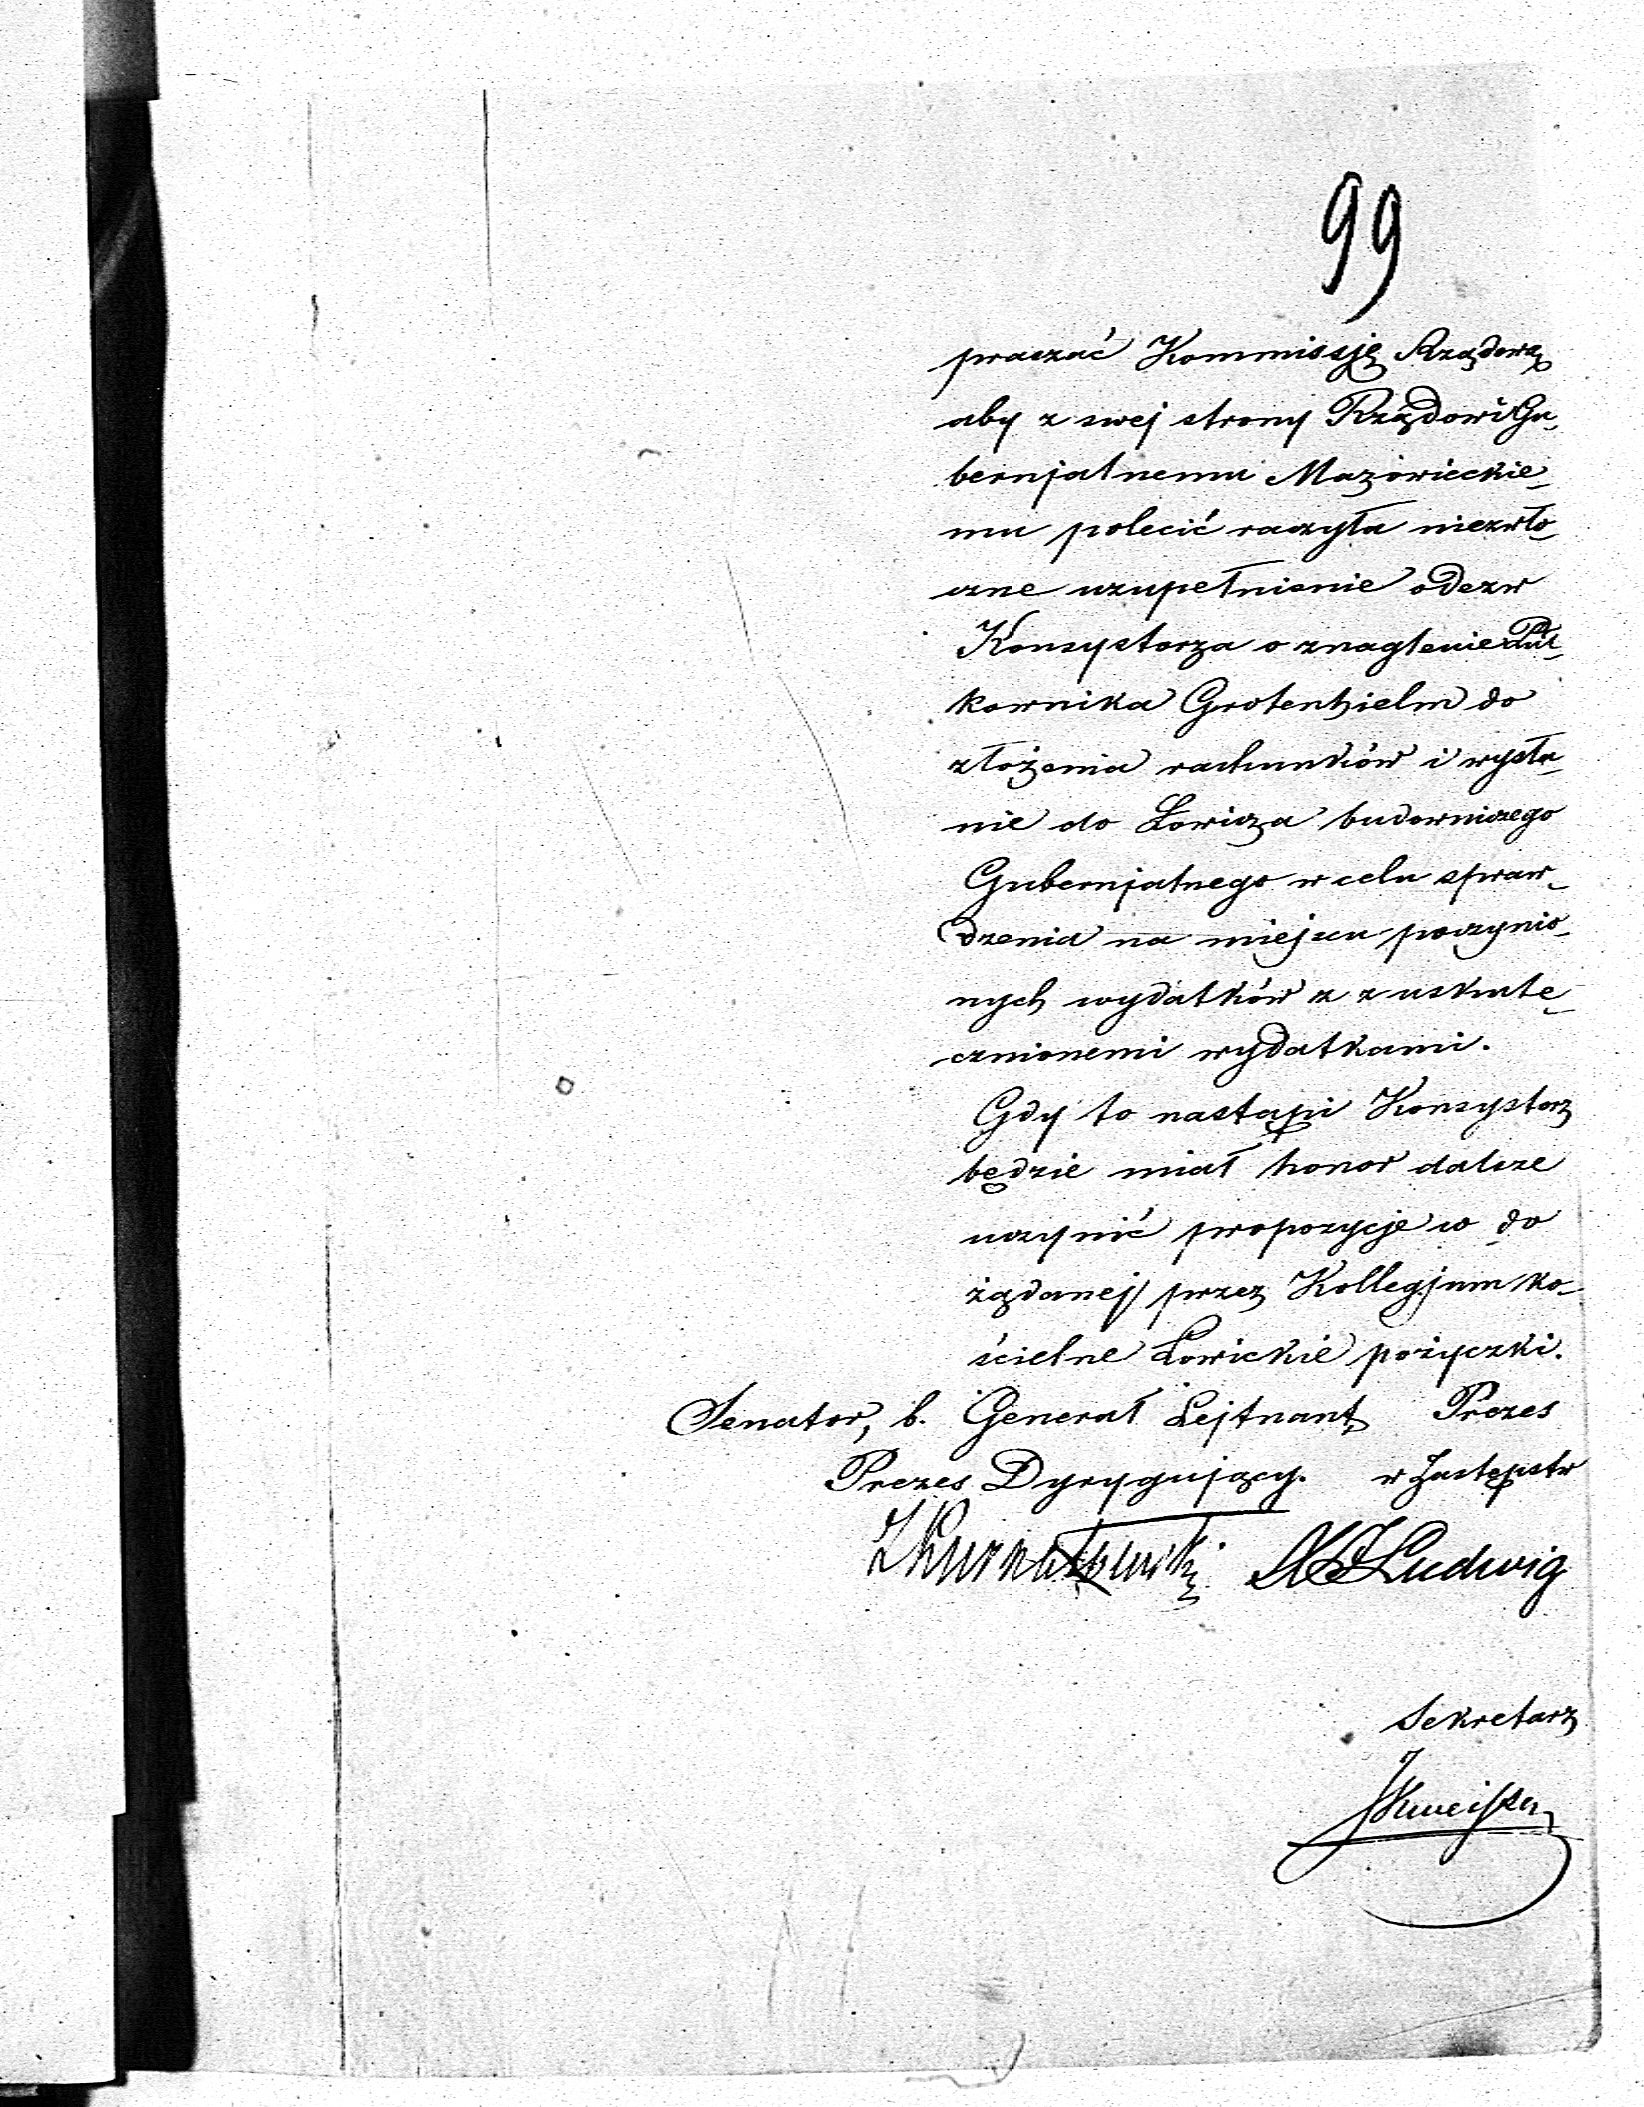 99
praszać Kommissję Rządową
aby z swej strony Rządowi Gu-
bernjalnemu Mazowieckie-
mu polecić raczyła niezwło-
czne uzupełnienie odezw
Konsystorza o znaglenie Puł-
kownika Grotenhielm do
złożenia rachunków i wysła-
nie do Łowicza budowniczego
Gubernjalnego w celu spraw-
dzenia na miejscu poczynio-
nych wydatków z uskute-
cznionemi wydatkami.
Gdy to nastąpi Konsystorz
będzie miał honor dalsze
uczynić propozycje co do
żądanej przez Kollegjum ko-
ścielne Łowickie pożyczki.
Senator, b. Generał Lejtnant Prezes
Prezes Dyrygujący. w Zastępstw
Ludwig
Sekretarz